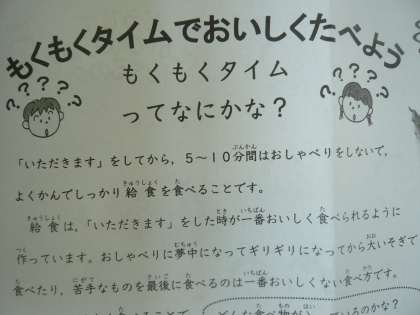 もくもくタイムでおいしくたべよう
もくもくタイム
ってなにかな？
「いただきます」をしてから，５～１０分間はおしゃべりをしないで，
よくかんでしっかり給食を食べることです。
給食は，「いただきます」をした時が一番おいしく食べられるように
作っています。おしゃべりに夢中になってギリギリになってから大いそぎで
食べたり，苦手なものを最後に食べるのは一番おいしくない食べ方です。